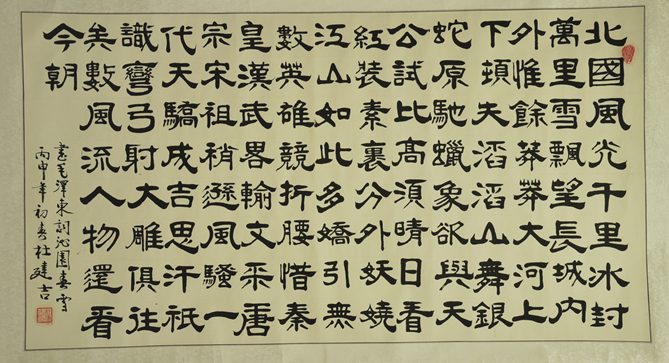 北國風光千里冰封
萬里雪飄望長城內
外惟餘莽莽大河上
下頓失滔滔山舞銀
蛇原馳蠟象欲與天
公試比高須晴日看
紅裝素裹分外妖嬈
江山如此多嬌引無
數英雄競折腰惜秦
皇漢武畧輸文采唐
宗宋祖稍遜風騷一
代天驕成吉思汗祇
識彎弓射大雕俱往
矣數風流人物還看
今朝
書毛澤東詞沁園春雪
丙申年初春杜建吉